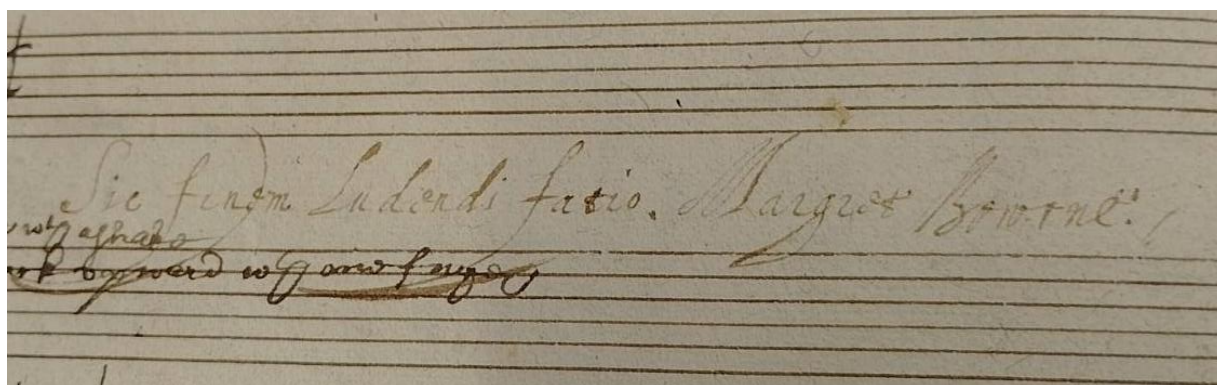 Sic finem Ludendi fatio. Margret Bowrne:
wth a shake
vpward wth one finger